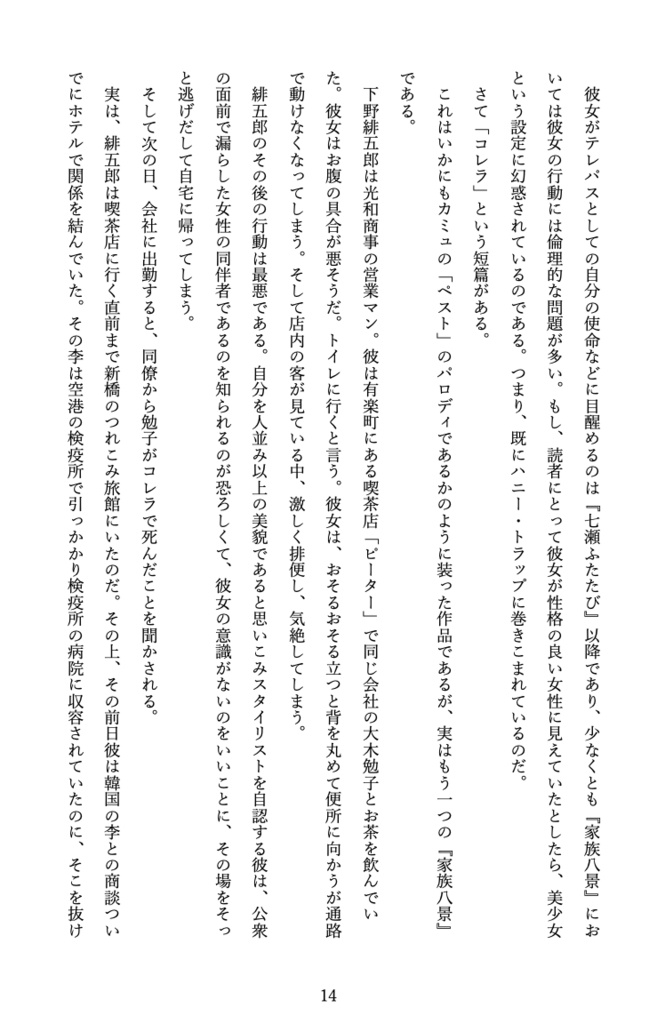 彼女がテレパスとしての自分の使命などに目醒めるのは『七瀬ふたたび』以降であり、少なくとも『家族八景』にお
いては彼女の行動には倫理的な問題が多い。もし、読者にとって彼女が性格の良い女性に見えていたとしたら、美少女
という設定に幻惑されているのである。つまり、既にハニー・トラップに巻きこまれているのだ。
さて「コレラ」という短篇がある。
これはいかにもカミュの「ペスト」のパロディであるかのように装った作品であるが、実はもう一つの『家族八景』
である。
下野緋五郎は光和商事の営業マン。彼は有楽町にある喫茶店「ピーター」で同じ会社の大木勉子とお茶を飲んでい
た。彼女はお腹の具合が悪そうだ。トイレに行くと言う。彼女は、おそるおそる立つと背を丸めて便所に向かうが通路
で動けなくなってしまう。そして店内の客が見ている中、激しく排便し、気絶してしまう。
緋五郎のその後の行動は最悪である。自分を人並み以上の美貌であると思いこみスタイリストを自認する彼は、公衆
の面前で漏らした女性の同伴者であるのを知られるのが恐ろしくて、彼女の意識がないのをいいことに、その場をそっ
と逃げだして自宅に帰ってしまう。
そして次の日、会社に出勤すると、同僚から勉子がコレラで死んだことを聞かされる。
実は、緋五郎は喫茶店に行く直前まで新橋のつれこみ旅館にいたのだ。その上、その前日彼は韓国の李との商談つい
でにホテルで関係を結んでいた。その李は空港の検疫所で引っかかり検疫所の病院に収容されていたのに、そこを抜け
14